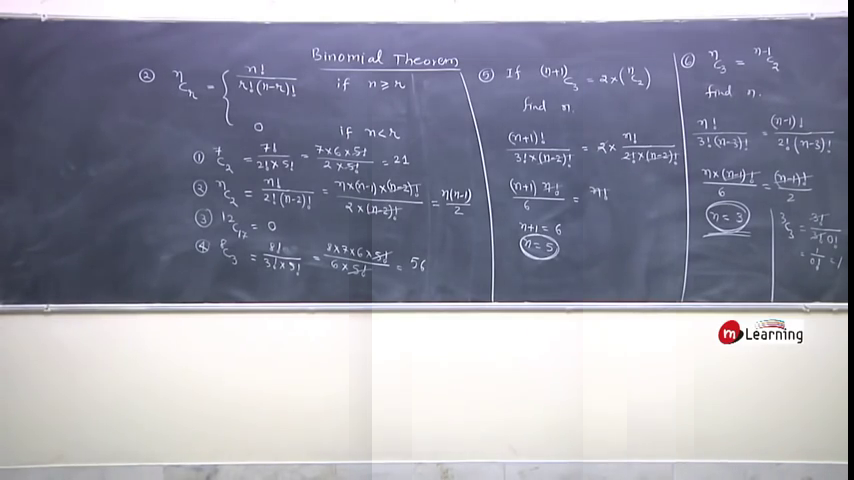 Binomial Theorem
② ⁿCᵣ = { n! / r!(n-r)! if n ≥ r
0 if n < r
① ⁷C₂ = 7! / 2! × 5! = 7×6×5! / 2×5! = 21
② ⁿC₂ = n! / 2!(n-2)! = n×(n-1)×(n-2)! / 2×(n-2)! = n(n-1) / 2
③ ¹²C₁₇ = 0
④ ⁸C₃ = 8! / 3!×5! = 8×7×6×5! / 6×5! = 56
⑤ If ⁽ⁿ⁺¹⁾C₃ = 2×(ⁿC₂)
find n.
(n+1)! / 3!(n-2)! = 2× n! / 2!(n-2)!
(n+1) n! / 6 = n!
n+1 = 6
n = 5
⑥ ⁿC₃ = ⁿ⁻¹C₂
find n.
n! / 3!(n-3)! = (n-1)! / 2!(n-3)!
n×(n-1)! / 6 = (n-1)! / 2
n = 3
³C₃ = 3! / 3! 0!
= 1 / 0! = 1
m Learning